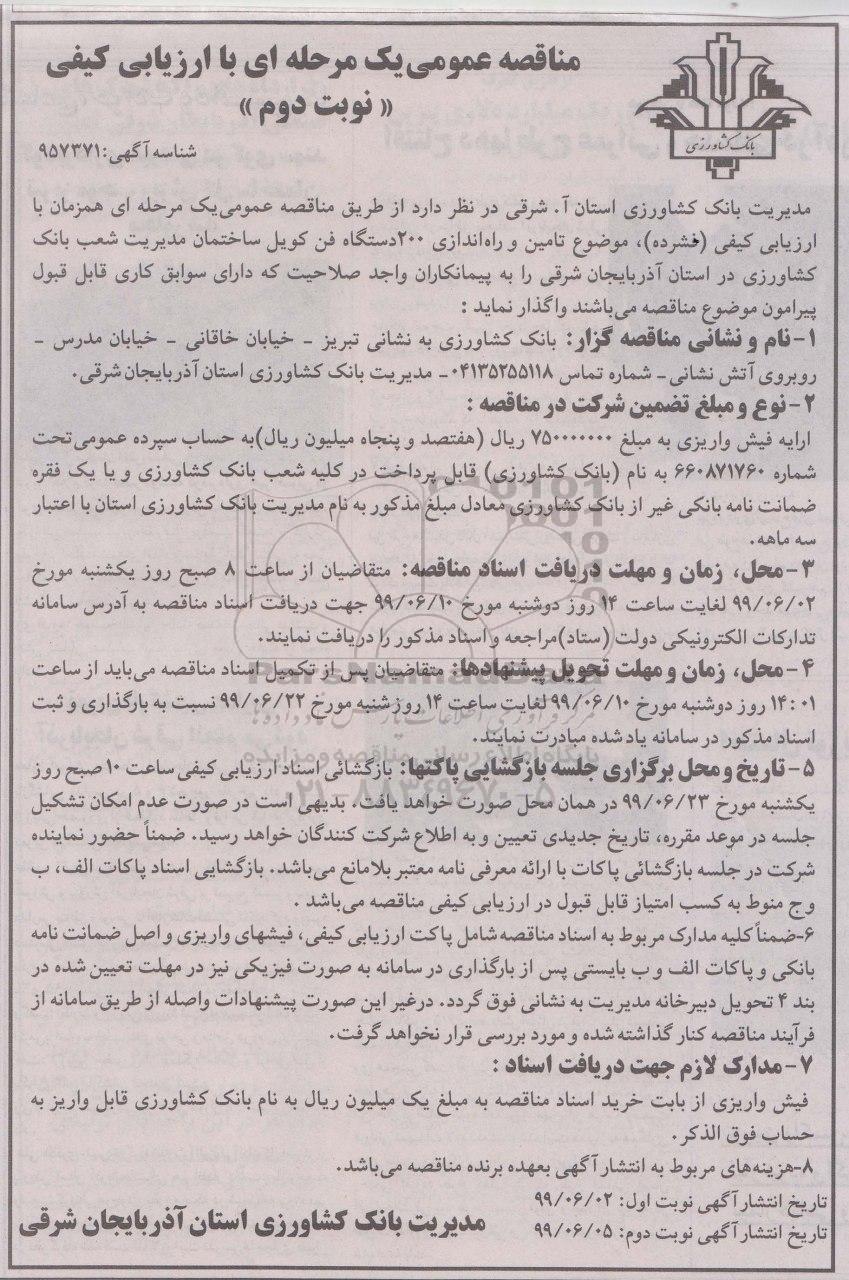 مناقصه عمومی یک مرحله ای با ارزیابی کیفی
« نوبت دوم »
بانک کشاورزی
شناسه آگهی: ۹۵۷۳۷۱
مدیریت بانک کشاورزی استان آ. شرقی در نظر دارد از طریق مناقصه عمومی یک مرحله ای همزمان با
ارزیابی کیفی (فشرده)، موضوع تامین و راه‌اندازی ۲۰۰دستگاه فن کویل ساختمان مدیریت شعب بانک
کشاورزی در استان آذربایجان شرقی را به پیمانکاران واجد صلاحیت که دارای سوابق کاری قابل قبول
پیرامون موضوع مناقصه می‌باشند واگذار نماید :
۱- نام و نشانی مناقصه گزار: بانک کشاورزی به نشانی تبریز - خیابان خاقانی - خیابان مدرس -
روبروی آتش نشانی- شماره تماس ۰۴۱۳۵۲۵۵۱۱۸- مدیریت بانک کشاورزی استان آذربایجان شرقی.
۲- نوع و مبلغ تضمین شرکت در مناقصه :
ارایه فیش واریزی به مبلغ ۷۵۰۰۰۰۰۰۰ ریال (هفتصد و پنجاه میلیون ریال)به حساب سپرده عمومی تحت
شماره ۶۶۰۸۷۱۷۶۰ به نام (بانک کشاورزی) قابل پرداخت در کلیه شعب بانک کشاورزی و یا یک فقره
ضمانت نامه بانکی غیر از بانک کشاورزی معادل مبلغ مذکور به نام مدیریت بانک کشاورزی استان با اعتبار
سه ماهه.
۳- محل، زمان و مهلت دریافت اسناد مناقصه: متقاضیان از ساعت ۸ صبح روز یکشنبه مورخ
۹۹/۰۶/۰۲ لغایت ساعت ۱۴ روز دوشنبه مورخ ۹۹/۰۶/۱۰ جهت دریافت اسناد مناقصه به آدرس سامانه
تدارکات الکترونیکی دولت (ستاد)مراجعه و اسناد مذکور را دریافت نمایند.
۴- محل، زمان و مهلت تحویل پیشنهادها: متقاضیان پس از تکمیل اسناد مناقصه می‌باید از ساعت
۱۴:۰۱ روز دوشنبه مورخ ۹۹/۰۶/۱۰ لغایت ساعت ۱۴ روز شنبه مورخ ۹۹/۰۶/۲۲ نسبت به بارگذاری و ثبت
اسناد مذکور در سامانه یاد شده مبادرت نمایند.
۵- تاریخ و محل برگزاری جلسه بازگشایی پاکتها: بازگشائی اسناد ارزیابی کیفی ساعت ۱۰ صبح روز
یکشنبه مورخ ۹۹/۰۶/۲۳ در همان محل صورت خواهد یافت. بدیهی است در صورت عدم امکان تشکیل
جلسه در موعد مقرره، تاریخ جدیدی تعیین و به اطلاع شرکت کنندگان خواهد رسید. ضمناً حضور نماینده
شرکت در جلسه بازگشائی پاکات با ارائه معرفی نامه معتبر بلامانع می‌باشد. بازگشایی اسناد پاکات الف، ب
و ج منوط به کسب امتیاز قابل قبول در ارزیابی کیفی مناقصه می‌باشد .
۶-ضمناً کلیه مدارک مربوط به اسناد مناقصه شامل پاکت ارزیابی کیفی، فیشهای واریزی و اصل ضمانت نامه
بانکی و پاکات الف و ب بایستی پس از بارگذاری در سامانه به صورت فیزیکی نیز در مهلت تعیین شده در
بند ۴ تحویل دبیرخانه مدیریت به نشانی فوق گردد. درغیر این صورت پیشنهادات واصله از طریق سامانه از
فرآیند مناقصه کنار گذاشته شده و مورد بررسی قرار نخواهد گرفت.
۷- مدارک لازم جهت دریافت اسناد :
فیش واریزی از بابت خرید اسناد مناقصه به مبلغ یک میلیون ریال به نام بانک کشاورزی قابل واریز به
حساب فوق الذکر.
۸-هزینه‌های مربوط به انتشار آگهی بعهده برنده مناقصه می‌باشد.
تاریخ انتشار آگهی نوبت اول: ۹۹/۰۶/۰۲
تاریخ انتشار آگهی نوبت دوم: ۹۹/۰۶/۰۵
مدیریت بانک کشاورزی استان آذربایجان شرقی
پایگاه اطلاع رسانی مناقصه و مزایده
۰۲۱-۸۸۳۴۹۶۷۰-۵